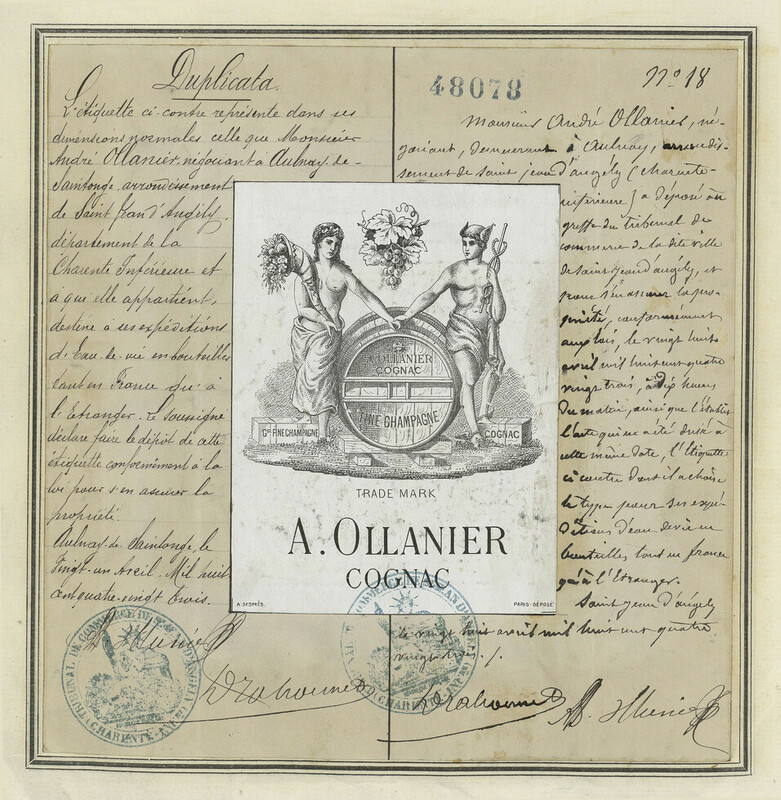 Duplicata.
L'étiquette ci-contre représente dans ses
dimensions normales celle que Monsieur
André Ollanier, négociant à Aulnay-de-
Saintonge, arrondissement
de Saint Jean d'Angély,
département de la
Charente Inférieure et
à qui elle appartient,
destine à ses expéditions
d'Eau-de-vie en bouteilles
tant en France qu'à
l'Etranger. Le soussigné
déclare faire le dépôt de cette
étiquette conformément à la
loi pour s'en assurer la
propriété.
Aulnay-de-Saintonge, le
Vingt-un Avril. Mil huit
cent quatre-vingt trois.
48078
N° 18
Monsieur André Ollanier, né-
gociant, demeurant à Aulnay, arrondis-
sement de Saint Jean d'angély (Charente-
inférieure) a déposé au
greffe du Tribunal de
commerce de la dite ville
de Saint Jean d'angély, et
pour s'en assurer la pro-
priété, conformément
aux lois, le vingt huit
avril mil huit cent quatre
vingt trois, à dix heures
du matin, ainsi que l'établit
l'acte qui en a été dressé à
cette même date, l'étiquette
ci contre dont il a choisi
le type pour ses expé-
ditions d'eau de vie en
bouteilles, tant en france
qu'à l'Etranger.
Saint Jean d'angély
le vingt huit avril mil huit cent quatre
vingt trois ./.
A. OLLANIER
COGNAC
FINE CHAMPAGNE
Gde FINE CHAMPAGNE
COGNAC
TRADE MARK
A. OLLANIER
COGNAC
A. DESPRÉS.
PARIS - DÉPOSÉ
TRIBUNAL DE COMMERCE DE St JEAN D'ANGELY
(CHARENTE-INFre)